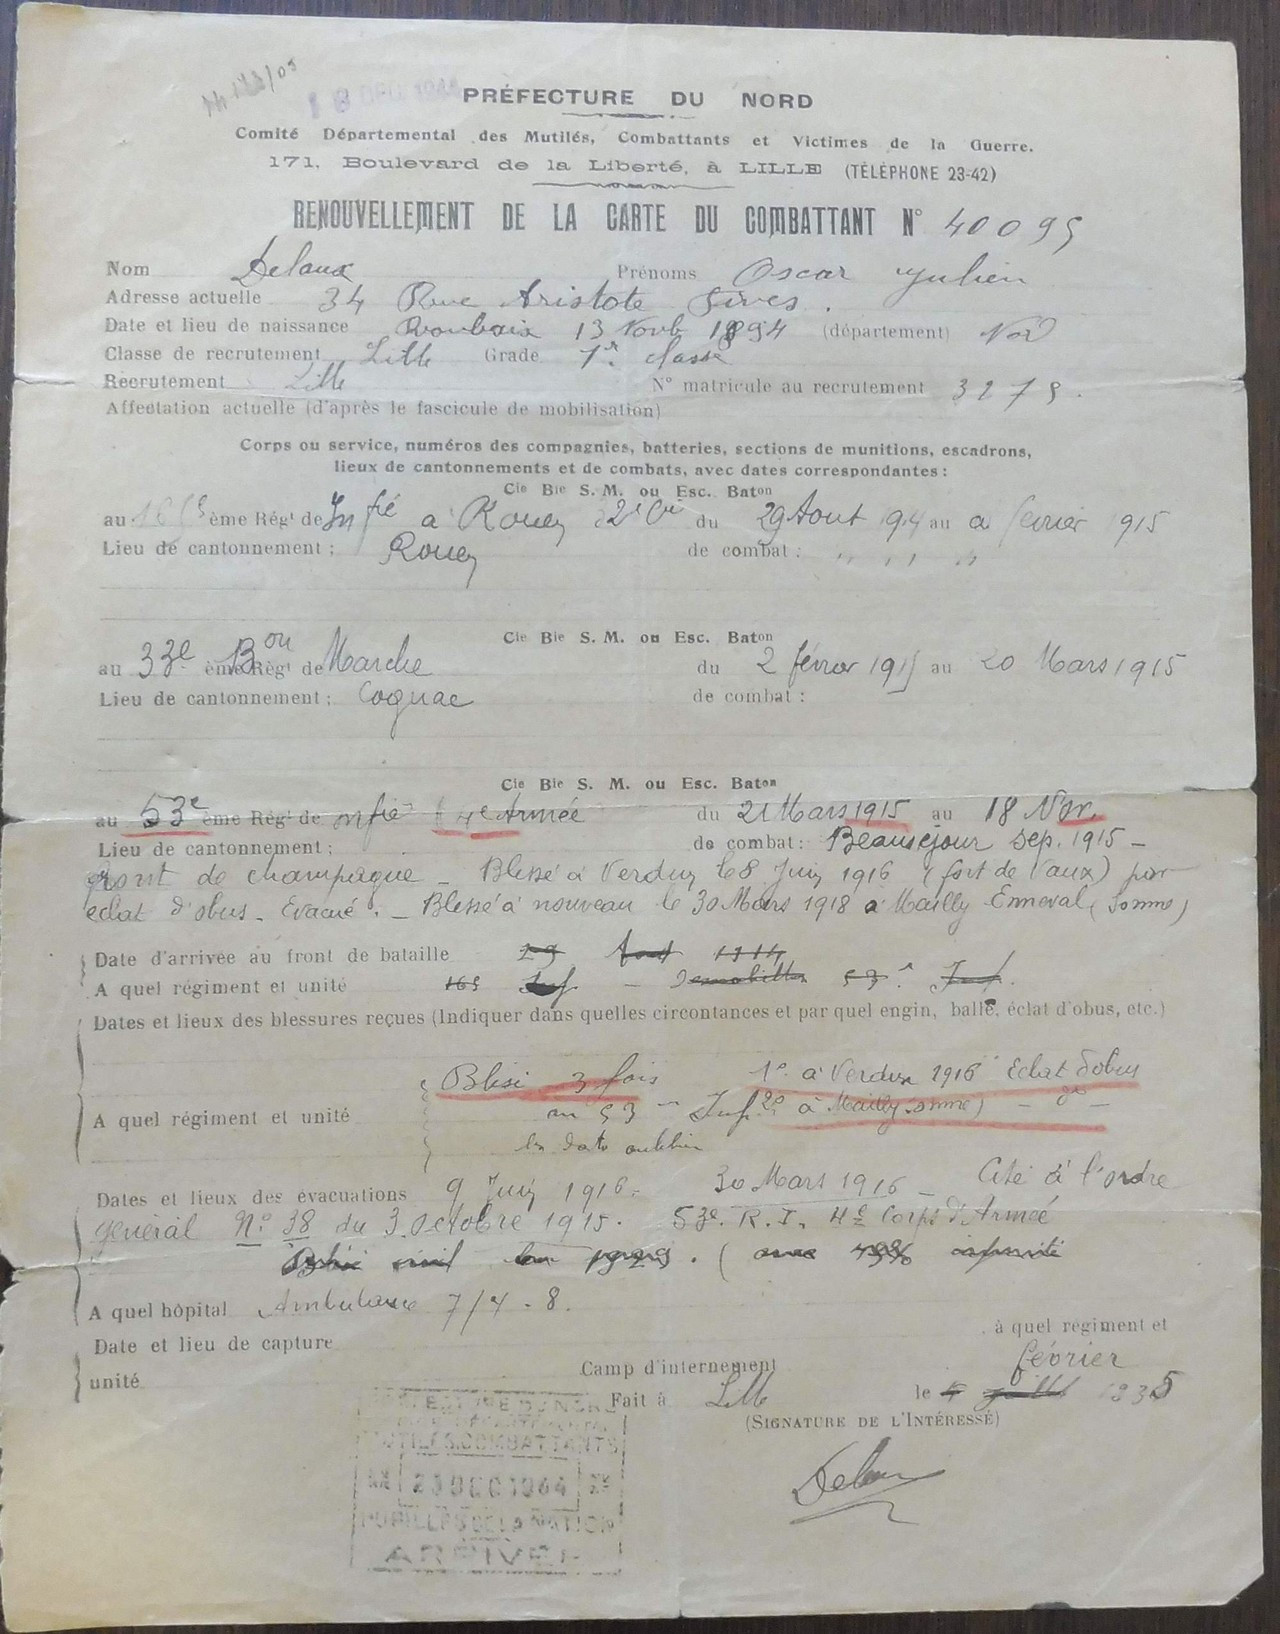 PRÉFECTURE DU NORD
Comité Départemental des Mutilés, Combattants et Victimes de la Guerre.
171, Boulevard de la Liberté, à LILLE (TÉLÉPHONE 23-42)
RENOUVELLEMENT DE LA CARTE DU COMBATTANT N° 40095
Nom Delaux Prénoms Oscar Julien
Adresse actuelle 34 Rue Aristote Fives.
Date et lieu de naissance Roubaix 13 Novb 1894 (département) Nord
Classe de recrutement Lille Grade 1r. classe
Recrutement Lille N° matricule au recrutement 3275.
Affectation actuelle (d'après le fascicule de mobilisation)
Corps ou service, numéros des compagnies, batteries, sections de munitions, escadrons,
lieux de cantonnements et de combats, avec dates correspondantes :
Cie Bie S. M. ou Esc. Baton
au 165 ème Régt de Infie a Rouen 2e Cie du 29 Aout 1914 au a fevrier 1915
Lieu de cantonnement : Rouen de combat : " " "
Cie Bie S. M. ou Esc. Baton
au 33e Bon ème Régt de Marche du 2 février 1915 au 20 Mars 1915
Lieu de cantonnement : Cognac de combat :
Cie Bie S. M. ou Esc. Baton
au 53e ème Régt de infie 4e Armée du 21 Mars 1915 au 18 Nov.
Lieu de cantonnement : de combat : Beauséjour sep. 1915 –
front de champagne – Blessé à Verdun le 8 Juin 1916 (fort de Vaux) par
eclat d'obus – Evacué. – Blessé à nouveau le 30 Mars 1918 à Mailly Enneval (Somme)
Date d'arrivée au front de bataille 29 Aout 1914
A quel régiment et unité 165 Inf – 53e Inf.
Dates et lieux des blessures reçues (Indiquer dans quelles circontances et par quel engin, balle, éclat d'obus, etc.)
Blessé 3 fois 1e à Verdun 1916 Eclat d'obus
A quel régiment et unité au 53 Inf. 2e à Mailly Somme) – do –
Dates et lieux des évacuations 9 Juin 1916. 30 Mars 1916 – Cité à l'ordre
général N° 38 du 3 Octobre 1915. 53e. R. I. 4e Corps d'Armée
A quel hôpital Ambulance 7/4 . 8.
Date et lieu de capture à quel régiment et
unité Camp d'internement février
Fait à Lille le 1935
(SIGNATURE DE L'INTÉRESSÉ)
Delaux
MUTILÉS.COMBATTANTS
23 DEC 1944
PUPILLES DE LA NATION
ARRIVÉE